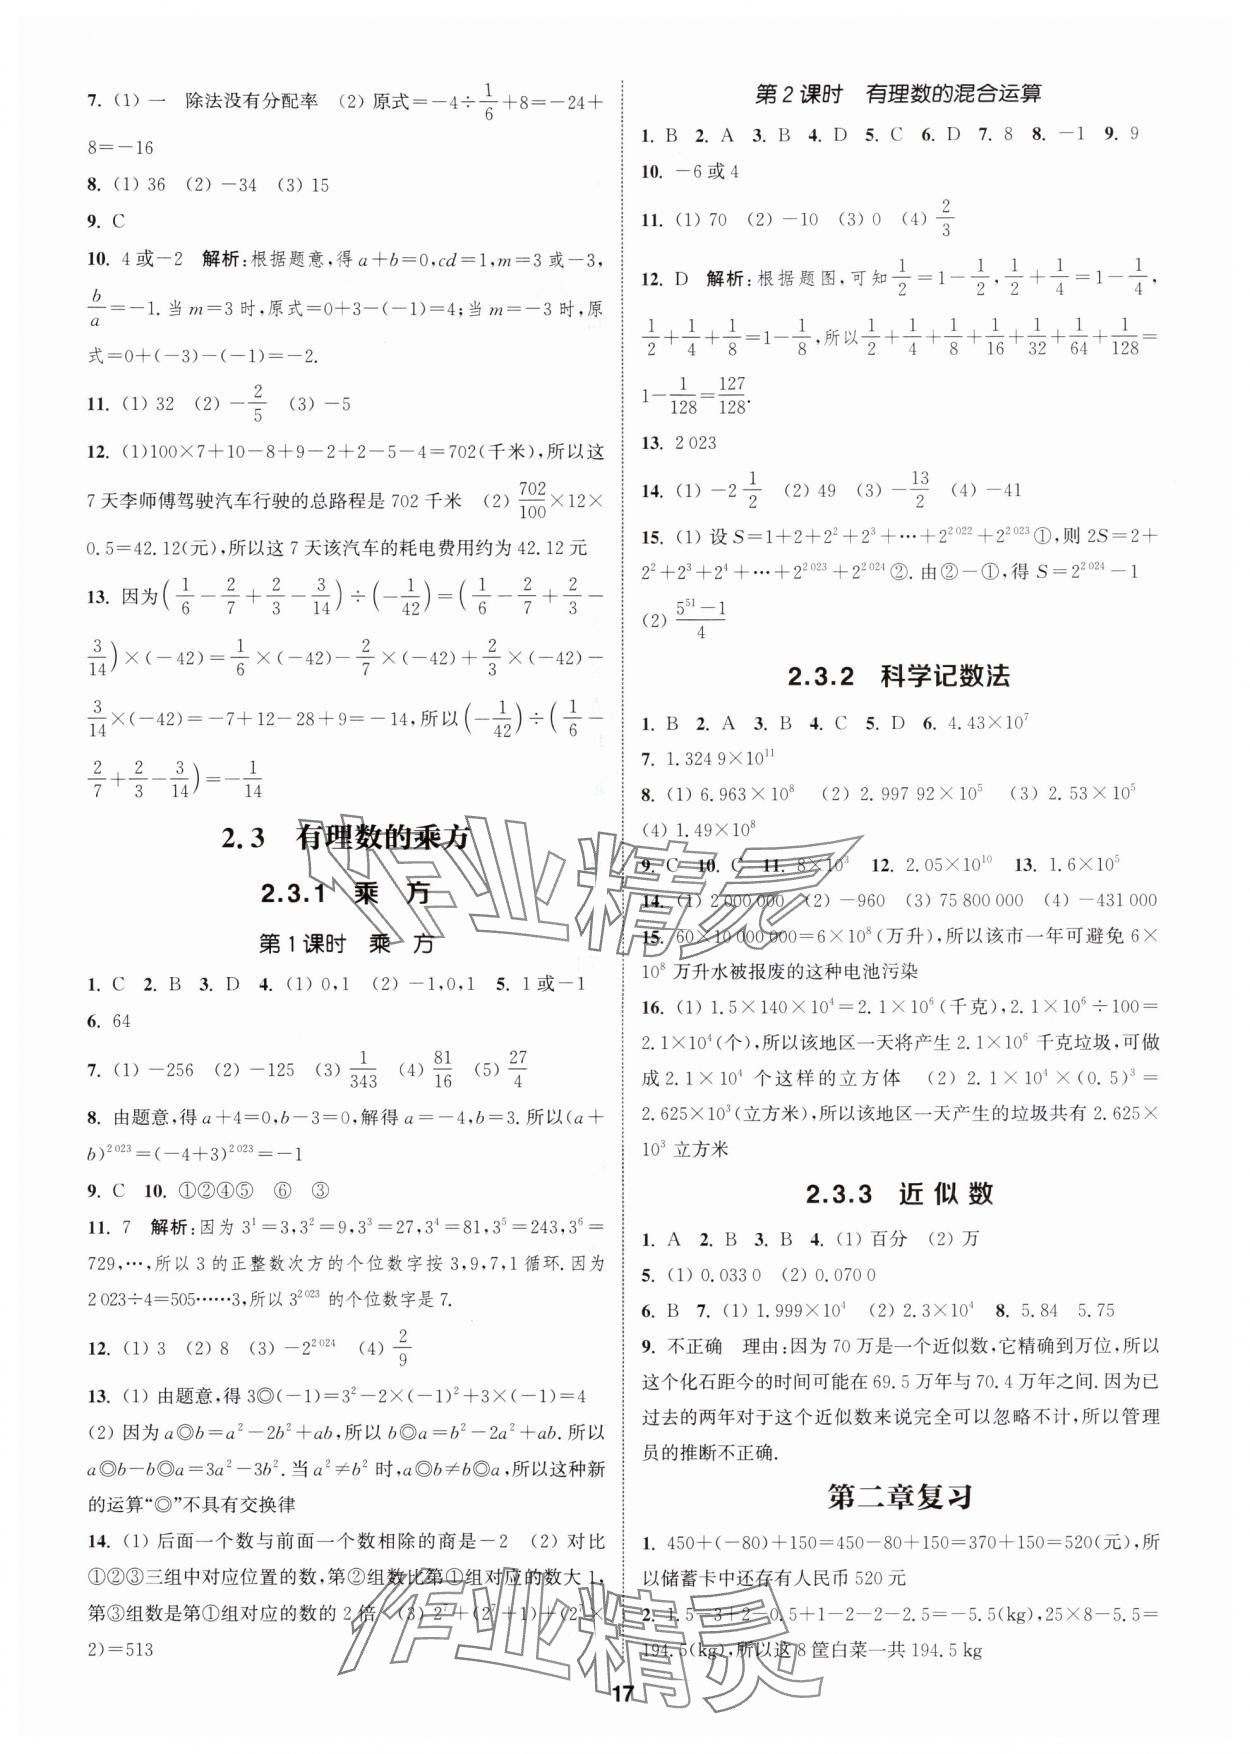 7. (1) 一　除法没有分配率　(2) 原式=-4÷1/6+8=-24+
8=-16
8. (1) 36　(2) -34　(3) 15
9. C
10. 4或-2　解析:根据题意,得a+b=0,cd=1,m=3或-3,
b/a=-1.当m=3时,原式=0+3-(-1)=4;当m=-3时,原
式=0+(-3)-(-1)=-2.
11. (1) 32　(2) -2/5　(3) -5
12. (1)100×7+10-8+9-2+2-5-4=702(千米),所以这
7天李师傅驾驶汽车行驶的总路程是702千米　(2) 702/100×12×
0.5=42.12(元),所以这7天该汽车的耗电费用约为42.12元
13. 因为(1/6-2/7+2/3-3/14)÷(-1/42)=(1/6-2/7+2/3-
3/14)×(-42)=1/6×(-42)-2/7×(-42)+2/3×(-42)-
3/14×(-42)=-7+12-28+9=-14,所以(-1/42)÷(1/6-
2/7+2/3-3/14)=-1/14
2.3　有理数的乘方
2.3.1　乘　方
第1课时　乘　方
1. C　2. B　3. D　4. (1) 0,1　(2) -1,0,1　5. 1或-1
6. 64
7. (1) -256　(2) -125　(3) 1/343　(4) 81/16　(5) 27/4
8. 由题意,得a+4=0,b-3=0,解得a=-4,b=3.所以(a+
b)²⁰²³=(-4+3)²⁰²³=-1
9. C　10. ①②④⑤　⑥　③
11. 7　解析:因为3¹=3,3²=9,3³=27,3⁴=81,3⁵=243,3⁶=
729,…,所以3的正整数次方的个位数字按3,9,7,1循环.因为
2023÷4=505……3,所以3²⁰²³的个位数字是7.
12. (1) 3　(2) 8　(3) -2²⁰²⁴　(4) 2/9
13. (1) 由题意,得3◎(-1)=3²-2×(-1)²+3×(-1)=4
(2) 因为a◎b=a²-2b²+ab,所以b◎a=b²-2a²+ab.所以
a◎b-b◎a=3a²-3b².当a²≠b²时,a◎b≠b◎a,所以这种新
的运算“◎”不具有交换律
14. (1) 后面一个数与前面一个数相除的商是-2　(2) 对比
①②③三组中对应位置的数,第②组数比第①组对应的数大1,
第③组数是第①组对应的数的2倍　(3) 2⁷+(2⁷+1)+(2⁷×
2)=513
第2课时　有理数的混合运算
1. B　2. A　3. B　4. D　5. C　6. D　7. 8　8. -1　9. 9
10. -6或4
11. (1) 70　(2) -10　(3) 0　(4) 2/3
12. D　解析:根据题图,可知1/2=1-1/2,1/2+1/4=1-1/4,
1/2+1/4+1/8=1-1/8,所以1/2+1/4+1/8+1/16+1/32+1/64+1/128=
1-1/128=127/128.
13. 2023
14. (1) -2 1/2　(2) 49　(3) -13/2　(4) -41
15. (1) 设S=1+2+2²+2³+…+2²⁰²²+2²⁰²³①,则2S=2+
2²+2³+2⁴+…+2²⁰²³+2²⁰²⁴②.由②-①,得S=2²⁰²⁴-1
(2) (5⁵¹-1)/4
2.3.2　科学记数法
1. B　2. A　3. B　4. C　5. D　6. 4.43×10⁷
7. 1.3249×10¹¹
8. (1) 6.963×10⁸　(2) 2.99792×10⁵　(3) 2.53×10⁵
(4) 1.49×10⁸
9. C　10. C　11. 8×10³　12. 2.05×10¹⁰　13. 1.6×10⁵
14. (1) 2000000　(2) -960　(3) 75800000　(4) -431000
15. 60×10000000=6×10⁸(万升),所以该市一年可避免6×
10⁸万升水被报废的这种电池污染
16. (1) 1.5×140×10⁴=2.1×10⁶(千克),2.1×10⁶÷100=
2.1×10⁴(个),所以该地区一天将产生2.1×10⁶千克垃圾,可做
成2.1×10⁴个这样的立方体　(2) 2.1×10⁴×(0.5)³=
2.625×10³(立方米),所以该地区一天产生的垃圾共有2.625×
10³立方米
2.3.3　近似数
1. A　2. B　3. B　4. (1) 百分　(2) 万
5. (1) 0.0330　(2) 0.0700
6. B　7. (1) 1.999×10⁴　(2) 2.3×10⁴　8. 5.84　5.75
9. 不正确　理由:因为70万是一个近似数,它精确到万位,所以
这个化石距今的时间可能在69.5万年与70.4万年之间.因为已
过去的两年对于这个近似数来说完全可以忽略不计,所以管理
员的推断不正确.
第二章复习
1. 450+(-80)+150=450-80+150=370+150=520(元),所
以储蓄卡中还存有人民币520元
2. 1.5-3+2-0.5+1-2-2-2.5=-5.5(kg),25×8-5.5=
194.5(kg),所以这8筐白菜一共194.5 kg
17
作业精灵
作业精灵